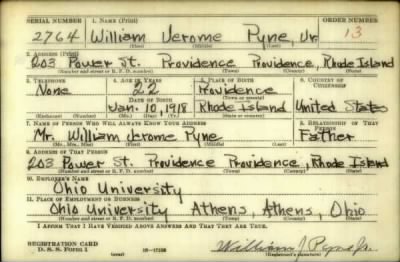 SERIAL NUMBER 1. NAME (Print) ORDER NUMBER
2764 William Jerome Pyne, Jr. 13
(First) (Middle) (Last)
2. ADDRESS (Print)
203 Power St. Providence Providence, Rhode Island
(Number and street or R. F. D. number) (Town) (County) (State)
3. TELEPHONE 4. AGE IN YEARS 5. PLACE OF BIRTH 6. COUNTRY OF CITIZENSHIP
None 22 Providence
DATE OF BIRTH (Town or county)
Jan. 10, 1918 Rhode Island United States
(Exchange) (Number) (Mo.) (Day) (Yr.) (State or country)
7. NAME OF PERSON WHO WILL ALWAYS KNOW YOUR ADDRESS 8. RELATIONSHIP OF THAT PERSON
Mr. William Jerome Pyne Father
(Mr., Mrs., Miss) (First) (Middle) (Last)
9. ADDRESS OF THAT PERSON
203 Power St. Providence Providence, Rhode Island
(Number and street or R. F. D. number) (Town) (County) (State)
10. EMPLOYER'S NAME
Ohio University
11. PLACE OF EMPLOYMENT OR BUSINESS
Ohio University Athens, Athens, Ohio
(Number and street or R. F. D. number) (Town) (County) (State)
I AFFIRM THAT I HAVE VERIFIED ABOVE ANSWERS AND THAT THEY ARE TRUE.
REGISTRATION CARD
D. S. S. Form 1 (over) William J Pyne Jr.
(Registrant's signature)